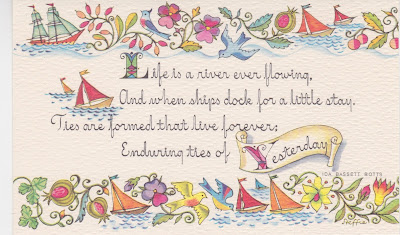 Life is a river ever flowing,
And when ships dock for a little stay.
Ties are formed that live forever;
Enduring ties of Yesterday
IDA BASSETT BOTTS